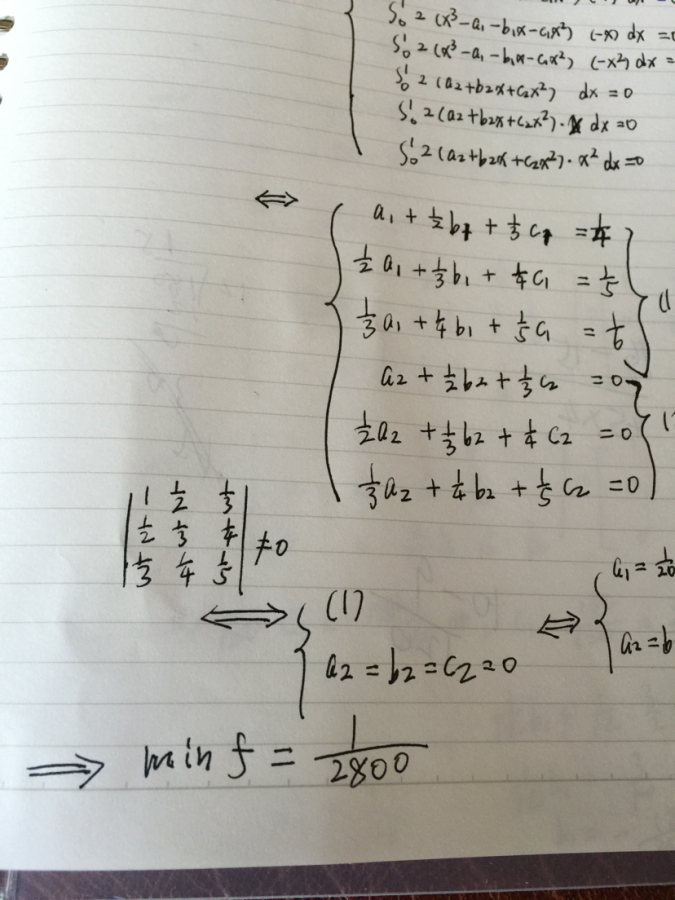 ∫₀¹ 2 (x³-a₁-b₁x-c₁x²) (-x) dx =0
∫₀¹ 2 (x³-a₁-b₁x-c₁x²) (-x²) dx =
∫₀¹ 2 (a₂+b₂x+c₂x²) dx = 0
∫₀¹ 2 (a₂+b₂x+c₂x²)·x dx =0
∫₀¹ 2 (a₂+b₂x+c₂x²)·x² dx =0
⇔ { a₁ + 1/2 b₁ + 1/3 c₁ = 1/4
1/2 a₁ + 1/3 b₁ + 1/4 c₁ = 1/5 } (1
1/3 a₁ + 1/4 b₁ + 1/5 c₁ = 1/6
a₂ + 1/2 b₂ + 1/3 c₂ = 0
1/2 a₂ + 1/3 b₂ + 1/4 c₂ = 0 } (
1/3 a₂ + 1/4 b₂ + 1/5 c₂ = 0
| 1 1/2 1/3 |
| 1/2 1/3 1/4 | ≠ 0
| 1/3 1/4 1/5 |
⇔ { (1) ⇔ { a₁ = 1/20
a₂ = b₂ = c₂ = 0 a₂ = b
⟹ min f = 1/2800